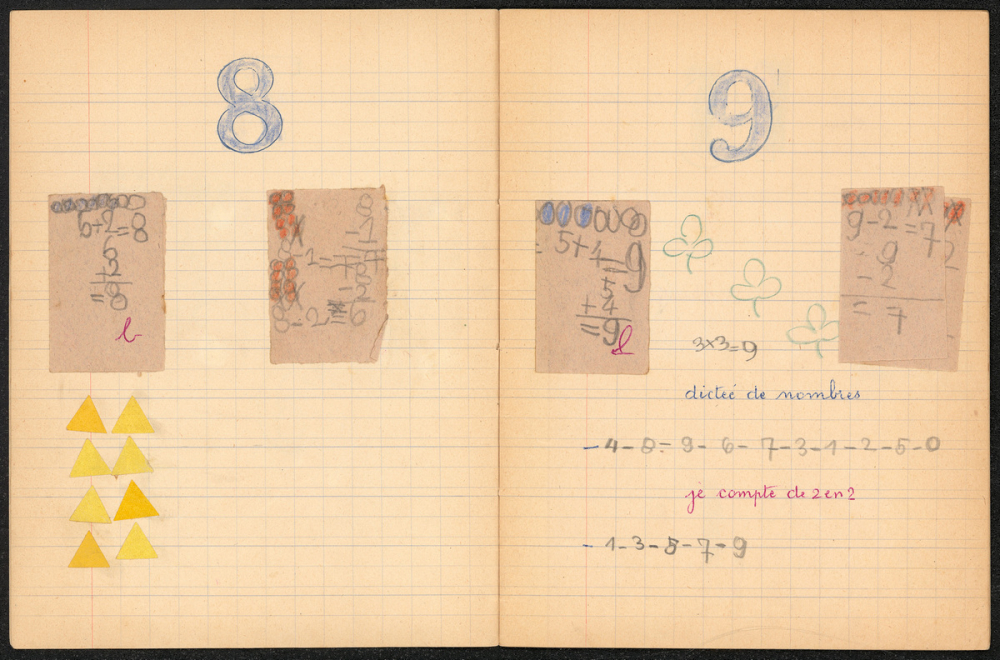 8
6+2=8
6
+2
=8
8-1=7
8-2=6
9
5+4=9
5
+4
=9
9-2=7
9
-2
=7
3x3=9
dicteé de nombres
-4-8-9-6-7-3-1-2-5-0
je compte de 2 en 2
-1-3-5-7-9